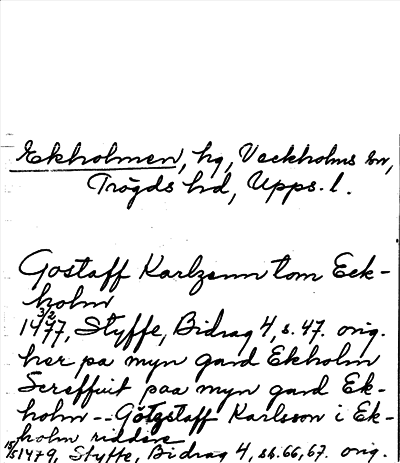 Ekholmen, hg, Veckholms sn,
Trögds hd, Upps. l.
Gostaff Karlzsun tom Eck-
holm
3/2
1477, Styffe, Bidrag 4, s. 47. orig.
her pa myn gard Ekholm
Screffuit paa myn gard Ek-
holm -- Götzstaff Karlsson i Ek-
holm riddere
15/5 1479, Styffe, Bidrag 4, ss. 66, 67. orig.